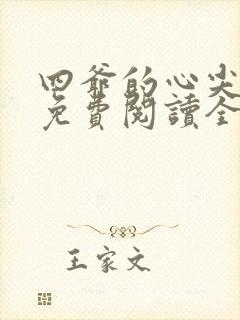 四爺的心尖
免費閱讀全
王家文